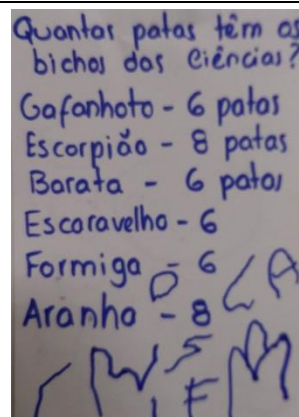 Quantas patas têm os
bichos das Ciências?
Gafanhoto - 6 patas
Escorpião - 8 patas
Barata - 6 patas
Escaravelho - 6
Formiga - 6
Aranha - 8